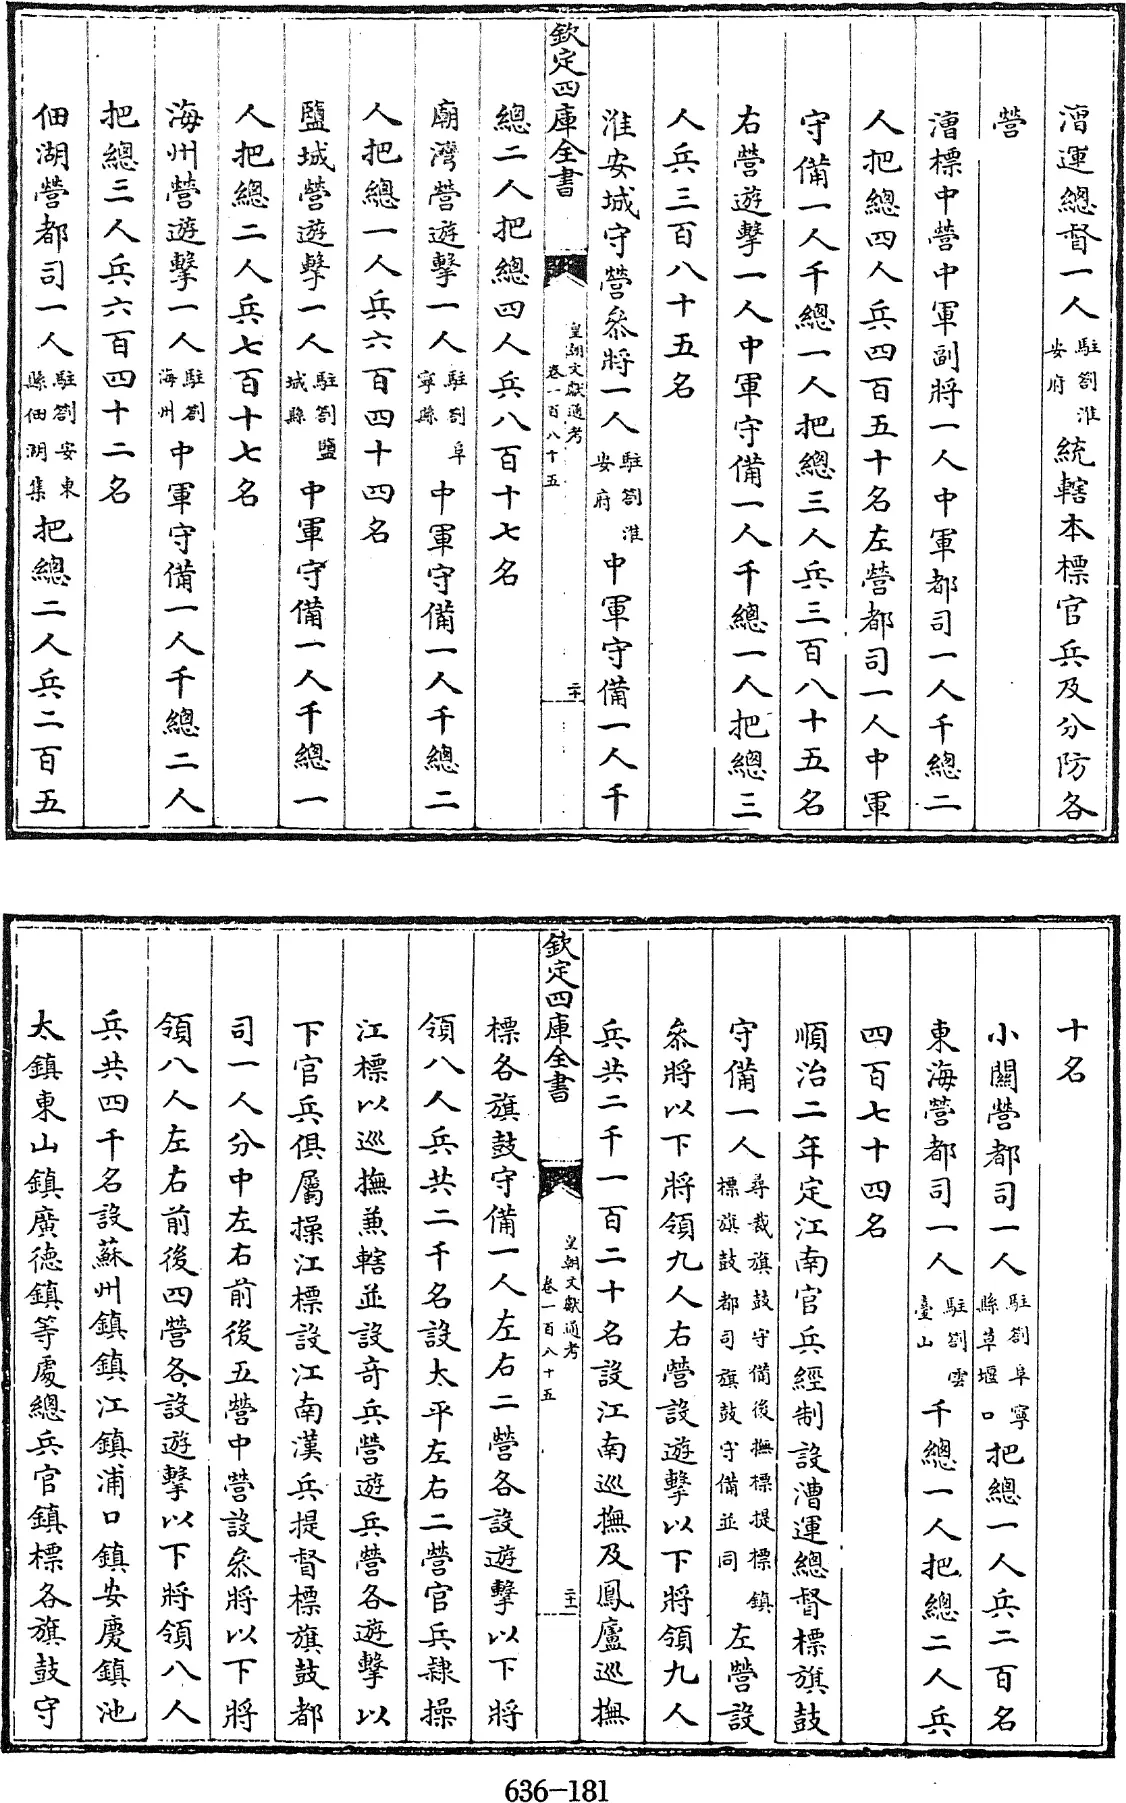 漕運總督一人駐劄淮安府統轄本標官兵及分防各
營
漕標中營中軍副將一人中軍都司一人千總二
人把總四人兵四百五十名左營都司一人中軍
守備一人千總一人把總三人兵三百八十五名
右營遊擊一人中軍守備一人千總一人把總三
人兵三百八十五名
淮安城守營叅將一人駐劄淮安府中軍守備一人千
欽定四庫全書
皇朝文獻通考
卷一百八十五
二十
總二人把總四人兵八百十七名
廟灣營遊擊一人駐劄阜寧縣中軍守備一人千總二
人把總一人兵六百四十四名
鹽城營遊擊一人駐劄鹽城縣中軍守備一人千總一
人把總二人兵七百十七名
海州營遊擊一人駐劄海州中軍守備一人千總二人
把總三人兵六百四十二名
佃湖營都司一人駐劄安東縣佃湖集把總二人兵二百五
十名
小關營都司一人駐劄阜寧縣草堰口把總一人兵二百名
東海營都司一人駐劄雲臺山千總一人把總二人兵
四百七十四名
順治二年定江南官兵經制設漕運總督標旗鼓
守備一人尋裁旗鼓守備後撫標提標鎮標旗鼓都司旗鼓守備並同左營設
叅將以下將領九人右營設遊擊以下將領九人
兵共二千一百二十名設江南巡撫及鳳廬巡撫
欽定四庫全書
皇朝文獻通考
卷一百八十五
二十一
標各旗鼓守備一人左右二營各設遊擊以下將
領八人兵共二千名設太平左右二營官兵隸操
江標以巡撫兼轄並設奇兵營遊兵營各遊擊以
下官兵俱屬操江標設江南漢兵提督標旗鼓都
司一人分中左右前後五營中營設叅將以下將
領八人左右前後四營各設遊擊以下將領八人
兵共四千名設蘇州鎮鎮江鎮浦口鎮安慶鎮池
太鎮東山鎮廣德鎮等處總兵官鎮標各旗鼓守
636-181